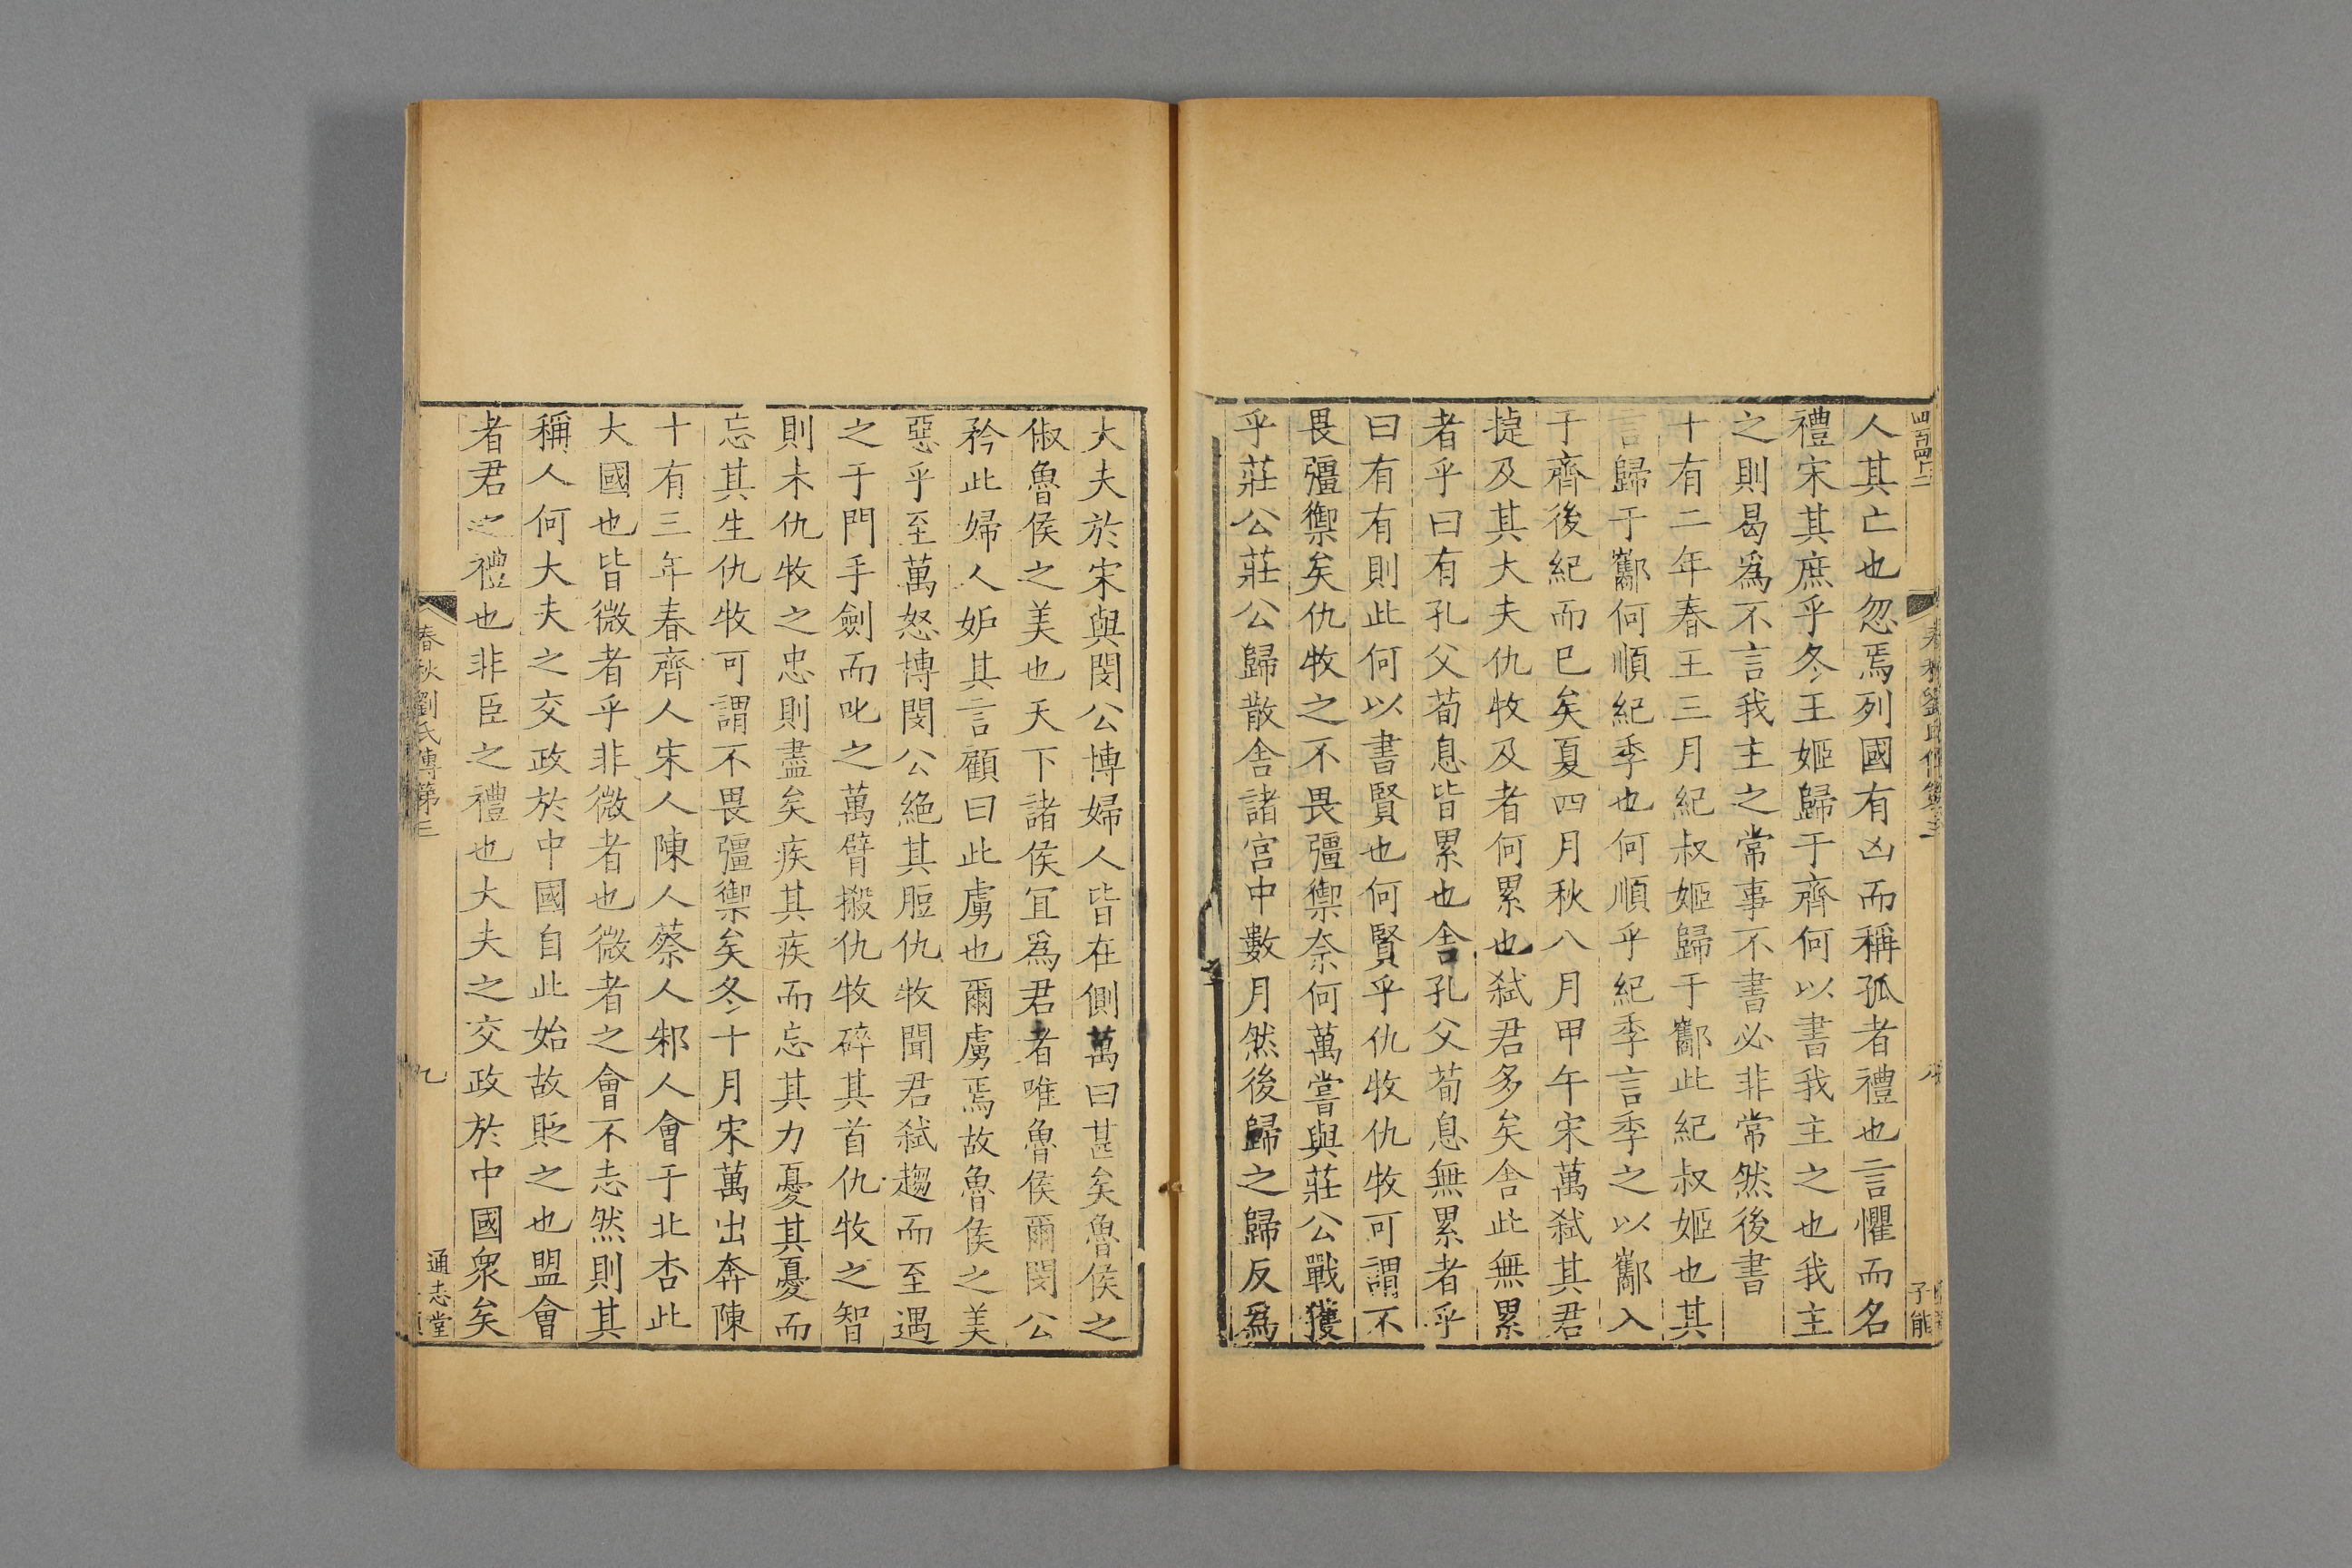 人其亡也忽焉列國有凶而稱孤者禮也言懼而名
禮宋其庶乎冬王姬歸于齊何以書我主之也我主
之則曷爲不言我主之常事不書必非常然後書
十有二年春王三月紀叔姬歸于酅此紀叔姬也其
言歸于酅何順紀季也何順乎紀季言季之以酅入
于齊後紀而已矣夏四月秋八月甲午宋萬弒其君
捷及其大夫仇牧及者何累也弒君多矣舍此無累
者乎曰有孔父荀息皆累也舍孔父荀息無累者乎
曰有有則此何以書賢也何賢乎仇牧仇牧可謂不
畏彊禦矣仇牧之不畏彊禦奈何萬嘗與莊公戰獲
乎莊公莊公歸散舍諸宮中數月然後歸之歸反爲
大夫於宋與閔公博婦人皆在側萬曰甚矣魯侯之
俶魯侯之美也天下諸侯冝爲君者唯魯侯爾閔公
矜此婦人妒其言顧曰此虜也爾虜焉故魯侯之美
惡乎至萬怒博閔公絶其脰仇牧聞君弒趨而至遇
之于門手劍而叱之萬臂摋仇牧碎其首仇牧之智
則未仇牧之忠則盡矣疾其疾而忘其力憂其憂而
忘其生仇牧可謂不畏彊禦矣冬十月宋萬出奔陳
十有三年春齊人宋人陳人蔡人邾人會于北杏此
大國也皆微者乎非微者也微者之會不志然則其
稱人何大夫之交政於中國自此始故貶之也盟會
者君之禮也非臣之禮也大夫之交政於中國衆矣
春秋劉氏傳第三
九
通志堂